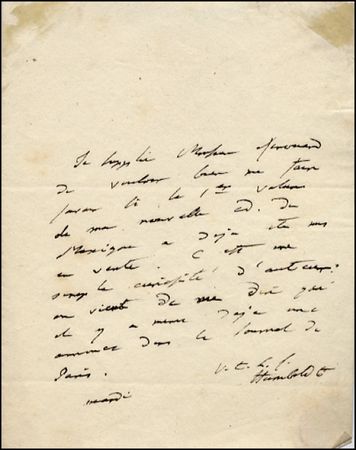 Je supplie Monsieur Renouard
de vouloir bien me faire
savoir si le 1er volume
de ma nouvelle éd. du
Mexique a déjà été mis
en vente. C'est une
simple curiosité d'auteur:
on vient de me dire qu'
il y a même déjà une
annonce dans le Journal de
Paris.
Humboldt
mardi